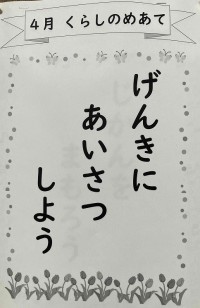 4月 くらしのめあて
げんきに
あいさつ
しよう